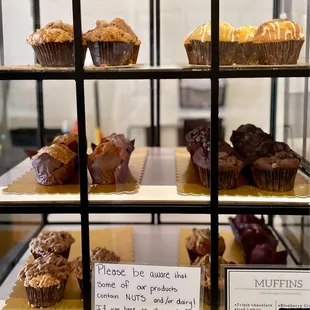 Please be aware that
some of our products
contain NUTS and/or dairy!
If you have an
MUFFINS
Triple chocolate
Blueberry C